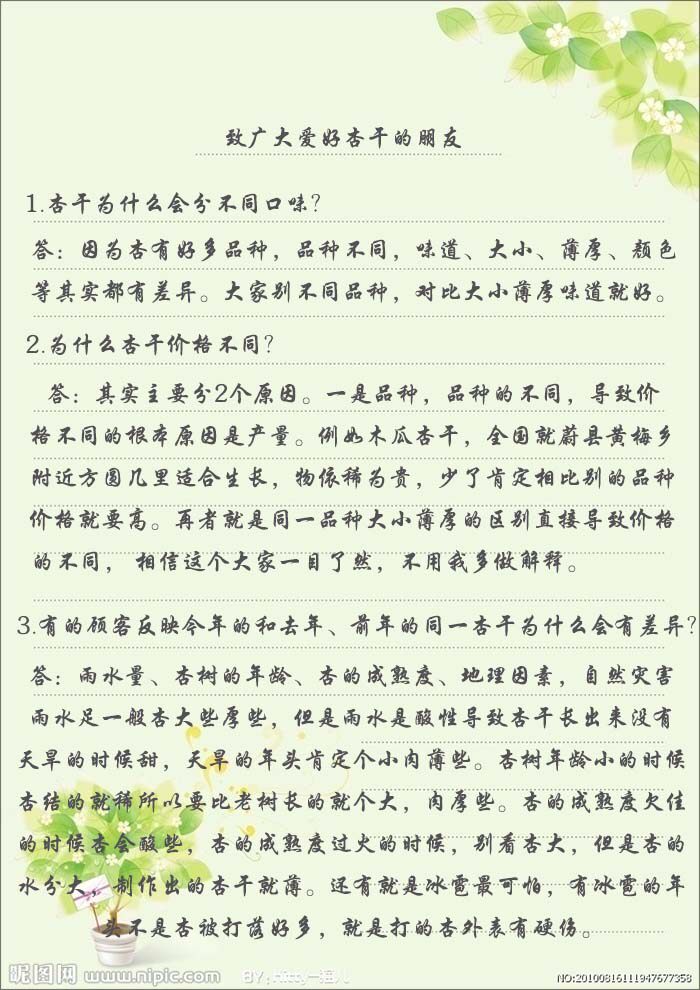 致广大爱好杏干的朋友
1.杏干为什么会分不同口味？
答：因为杏有好多品种，品种不同，味道、大小、薄厚、颜色
等其实都有差异。大家别不同品种，对比大小薄厚味道就好。
2.为什么杏干价格不同？
答：其实主要分2个原因。一是品种，品种的不同，导致价
格不同的根本原因是产量。例如木瓜杏干，全国就蔚县黄梅乡
附近方圆几里适合生长，物依稀为贵，少了肯定相比别的品种
价格就要高。再者就是同一品种大小薄厚的区别直接导致价格
的不同， 相信这个大家一目了然，不用我多做解释。
3.有的顾客反映今年的和去年、前年的同一杏干为什么会有差异？
答：雨水量、杏树的年龄、杏的成熟度、地理因素，自然灾害
雨水足一般杏大些厚些，但是雨水是酸性导致杏干长出来没有
天旱的时候甜，天旱的年头肯定个小肉薄些。杏树年龄小的时候
杏结的就稀所以要比老树长的就个大，肉厚些。杏的成熟度欠佳
的时候杏会酸些，杏的成熟度过火的时候，别看杏大，但是杏的
水分大，制作出的杏干就薄。还有就是冰雹最可怕，有冰雹的年
头不是杏被打落好多，就是打的杏外表有硬伤。
昵图网 www.nipic.com
BY：
NO:20100816111947677358